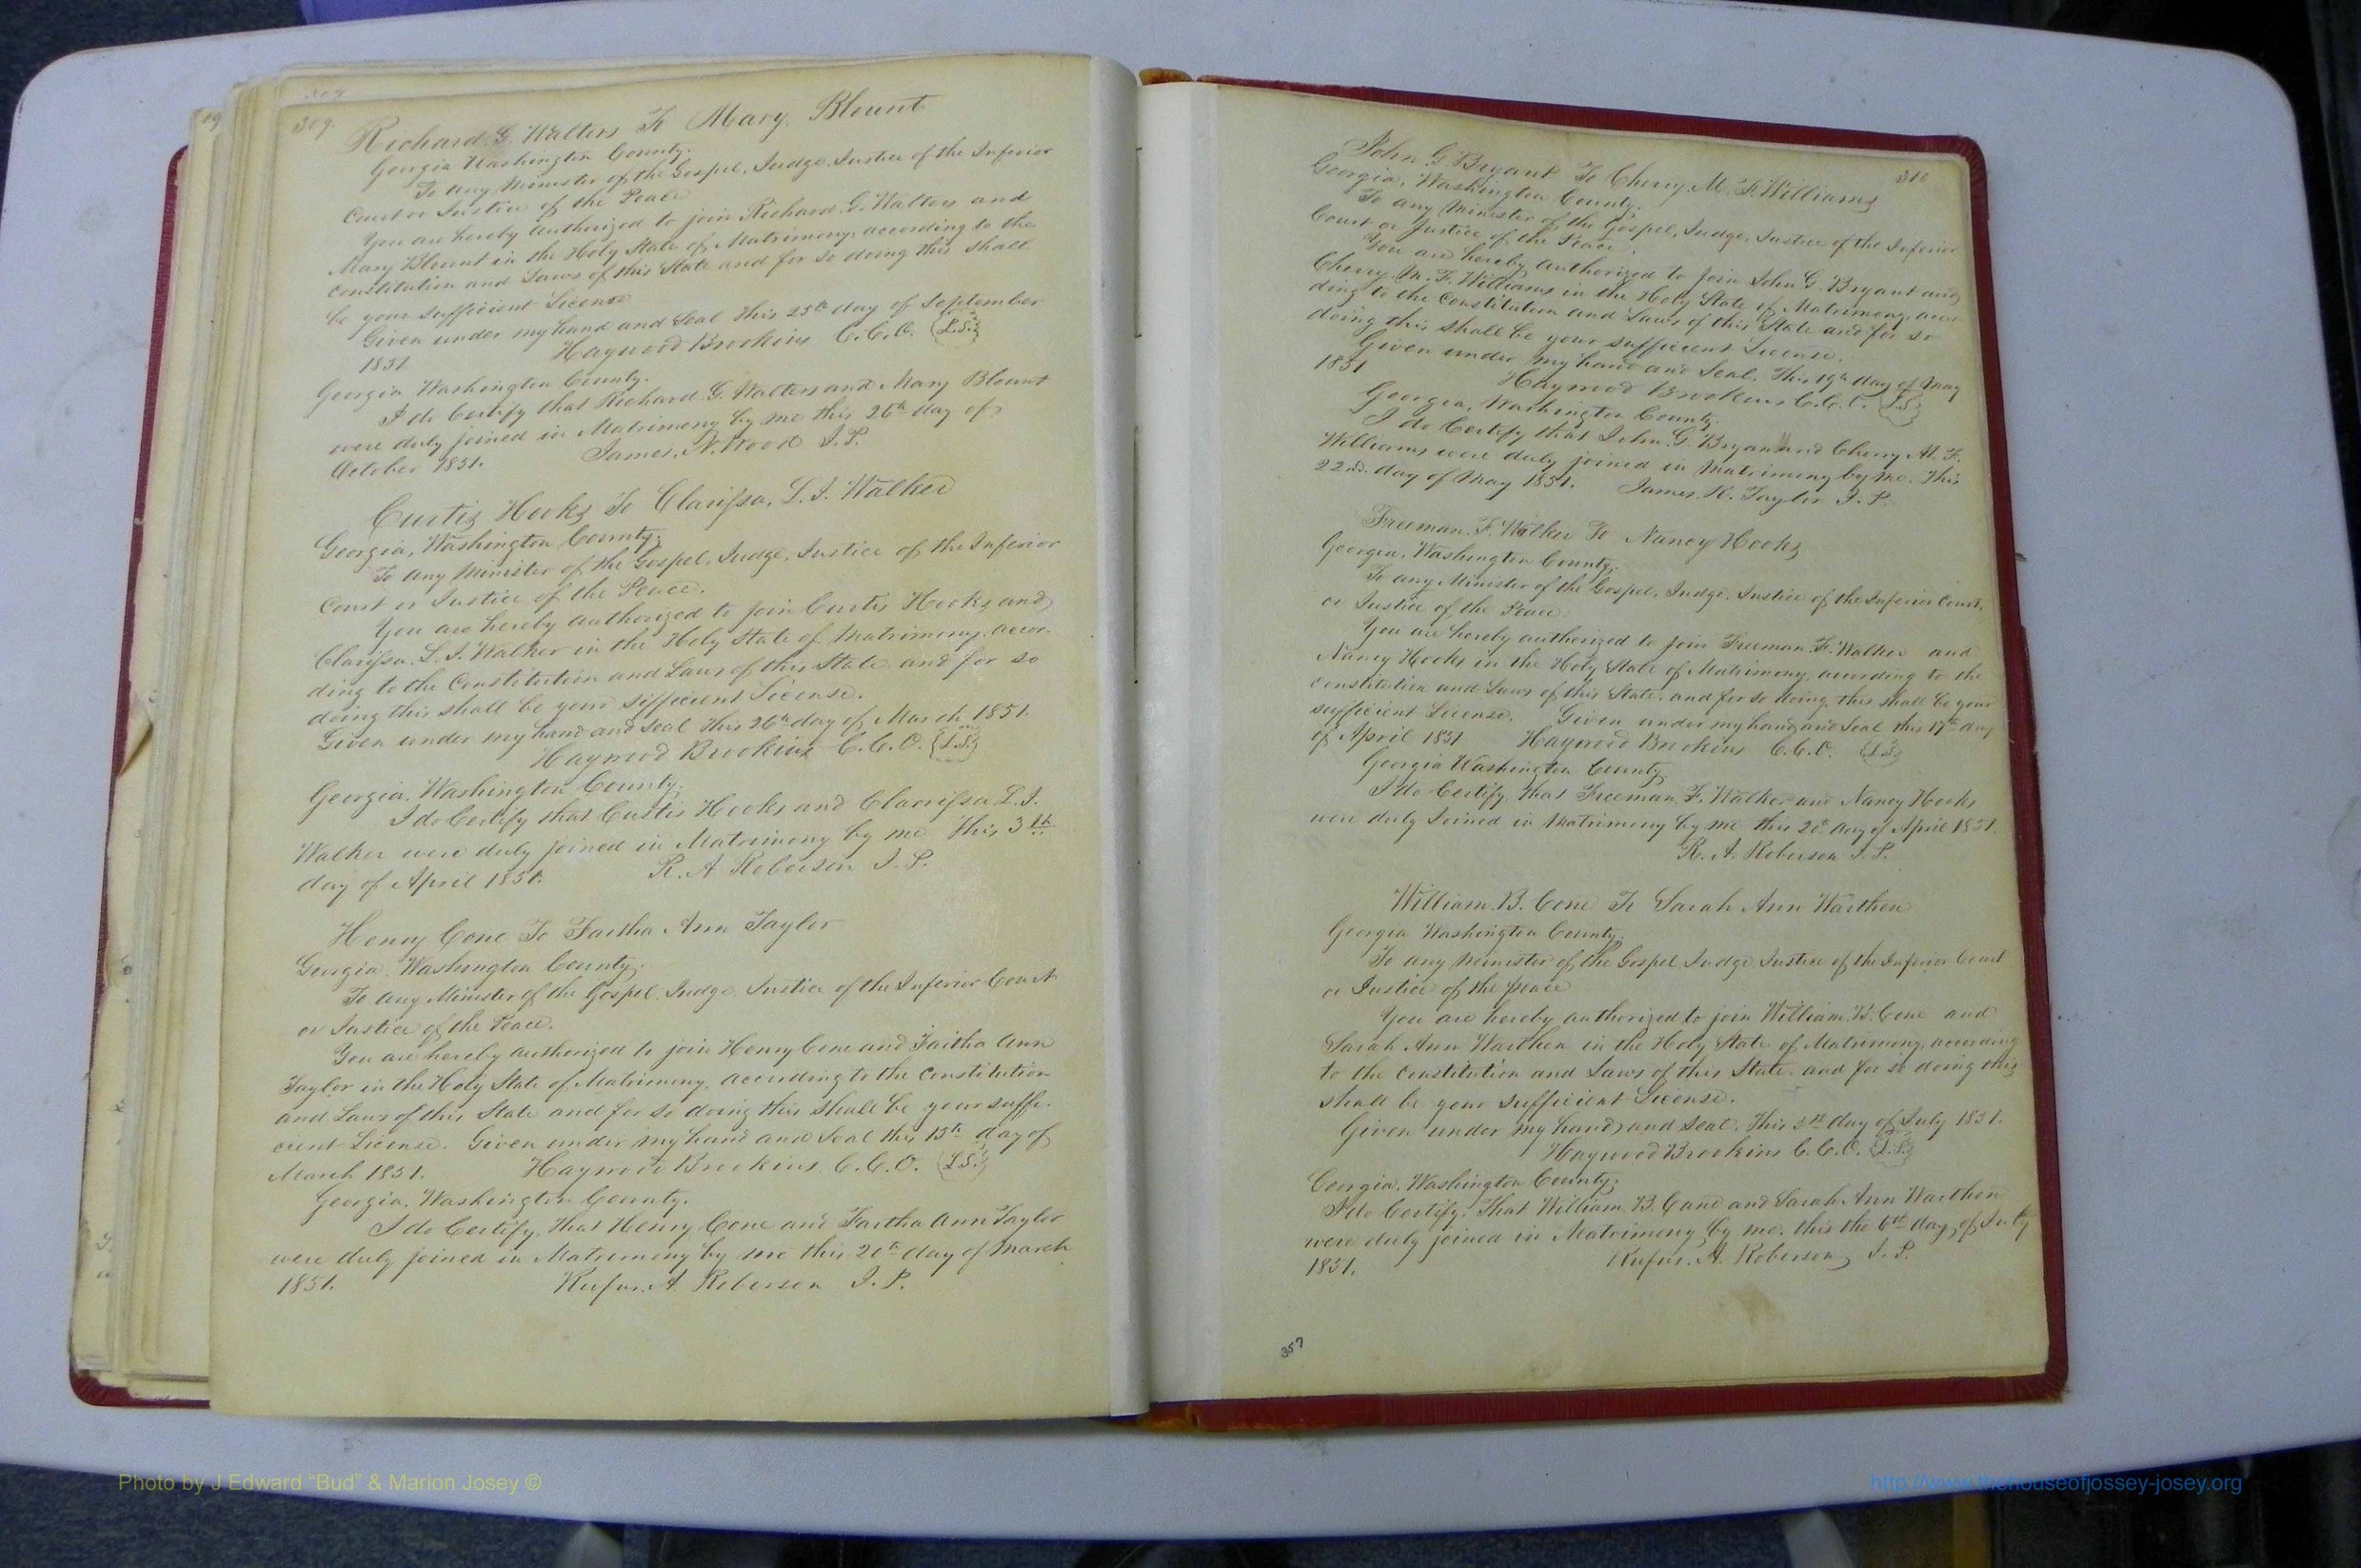 309.
Richard. G. Walters To Mary Blount
Georgia Washington County.
To any Minister of the Gospel, Judge, Justice of the Inferior
Court or Justice of the Peace
You are hereby authorized to join Richard. G. Walters and
Mary Blount in the Holy State of Matrimony, according to the
constitution and Laws of this State and for so doing this shall
be your sufficient License
Given under my hand and Seal This 25th day of September
1851. Haywood Brookins C.C.O. (L.S.)
Georgia Washington County.
I do Certify that Richard. G. Walters and Mary Blount
were duly joined in Matrimony by me this 26th day of
October 1851. James. N. Wood J.P.
Curtis Hooks To Clarissa. L. J. Walker
Georgia, Washington County.
To any Minister of the Gospel, Judge, Justice of the Inferior
Court or Justice of the Peace.
You are hereby authorized to join Curtis Hooks and
Clarissa. L. J. Walker in the Holy State of Matrimony, accor-
ding to the Constitution and Laws of this State and for so
doing this shall be your sifficient License.
Given under my hand and Seal This 26th day of March 1851.
Haywood Brookins C.C.O. (L.S.)
Georgia. Washington County.
I do Certify that Curtis Hooks and Clarrissa L. J.
Walker were duly joined in Matrimony by me this 3th
day of April 1851. R. A Roberson J. P.
Henry Cone To Faitha Ann Taylor
Georgia. Washington County.
To any Minister of the Gospel. Judge. Justice of the Inferior Court
or Justice of the Peace.
You are hereby authorized to join Henry Cone and Faitha Ann
Taylor in the Holy State of Matrimony, according to the Constitution
and Laws of this State and for so doing this shall be your suffi-
cient License. Given under my hand and Seal this 15th day of
March 1851. Haywood Brookins. C.C.O. (L.S.)
Georgia. Washington County.
I do Certify, that Henry Cone and Faitha Ann Taylor
were duly joined in Matrimony by me this 20th day of March
1851. Rufus. A. Roberson J. P.
310
John G Bryant To Cherry. M. F. Williams
Georgia, Washington County.
To any Minister of the Gospel, Judge, Justice of the Inferior
Court or Justice of the Peace
You are hereby authorized to join John G. Bryant and
Cherry. M. F. Williams in the Holy State of Matrimony, accor-
ding to the Constitution and Laws of this State and for so
doing this shall be your sufficient License.
Given under my hand and Seal. This 19th day of May
1851 Haywood Brookins C.C.O. (L.S.)
Georgia, Washington County.
I do Certify that John. G. Bryant and Cherry M. F.
Williams were duly joined in Matrimony by me. This
22nd. day of May 1851. James. R. Taylor J. P.
Freeman. F. Walker To Nancy Hooks
Georgia. Washington County.
To any Minister of the Gospel, Judge, Justice of the Inferior Court,
or Justice of the Peace.
You are hereby authorized to join Freeman. F. Walker and
Nancy Hooks in the Holy State of Matrimony, according to the
constitution and Laws of this State. and for so doing, this shall be your
sufficient License. Given under my hand and Seal this 17th day
of April 1851 Haywood Brookins C.C.O. (L.S.)
Georgia Washington County.
I do Certify, that Freeman. F. Walker and Nancy Hooks
were duly Joined in Matrimony by me this 20th day of April 1851.
R. A. Roberson J. P.
William. B. Cone To Sarah Ann Warthen
Georgia Washington County.
To any Minister of the Gospel Judge Justice of the Inferior Court
or Justice of the peace
You are hereby authorized to join William. B. Cone and
Sarah Ann Warthen in the Holy State of Matrimony, according
to the Constitution and Laws of this State. and for so doing this
shall be your sufficient License.
Given under my hand and Seal. This 5th day of July 1851.
Haywood Brookins C.C.O. (L.S.)
Georgia. Washington County.
I do Certify. That William. B. Cane and Sarah Ann Warthen
were duly joined in Matrimony by me. this the 6th day of July
1851. Rufus. A. Roberson J. P.
357
Photo by J Edward “Bud” & Marion Josey ©
http://www.thehouseofjossey-josey.org